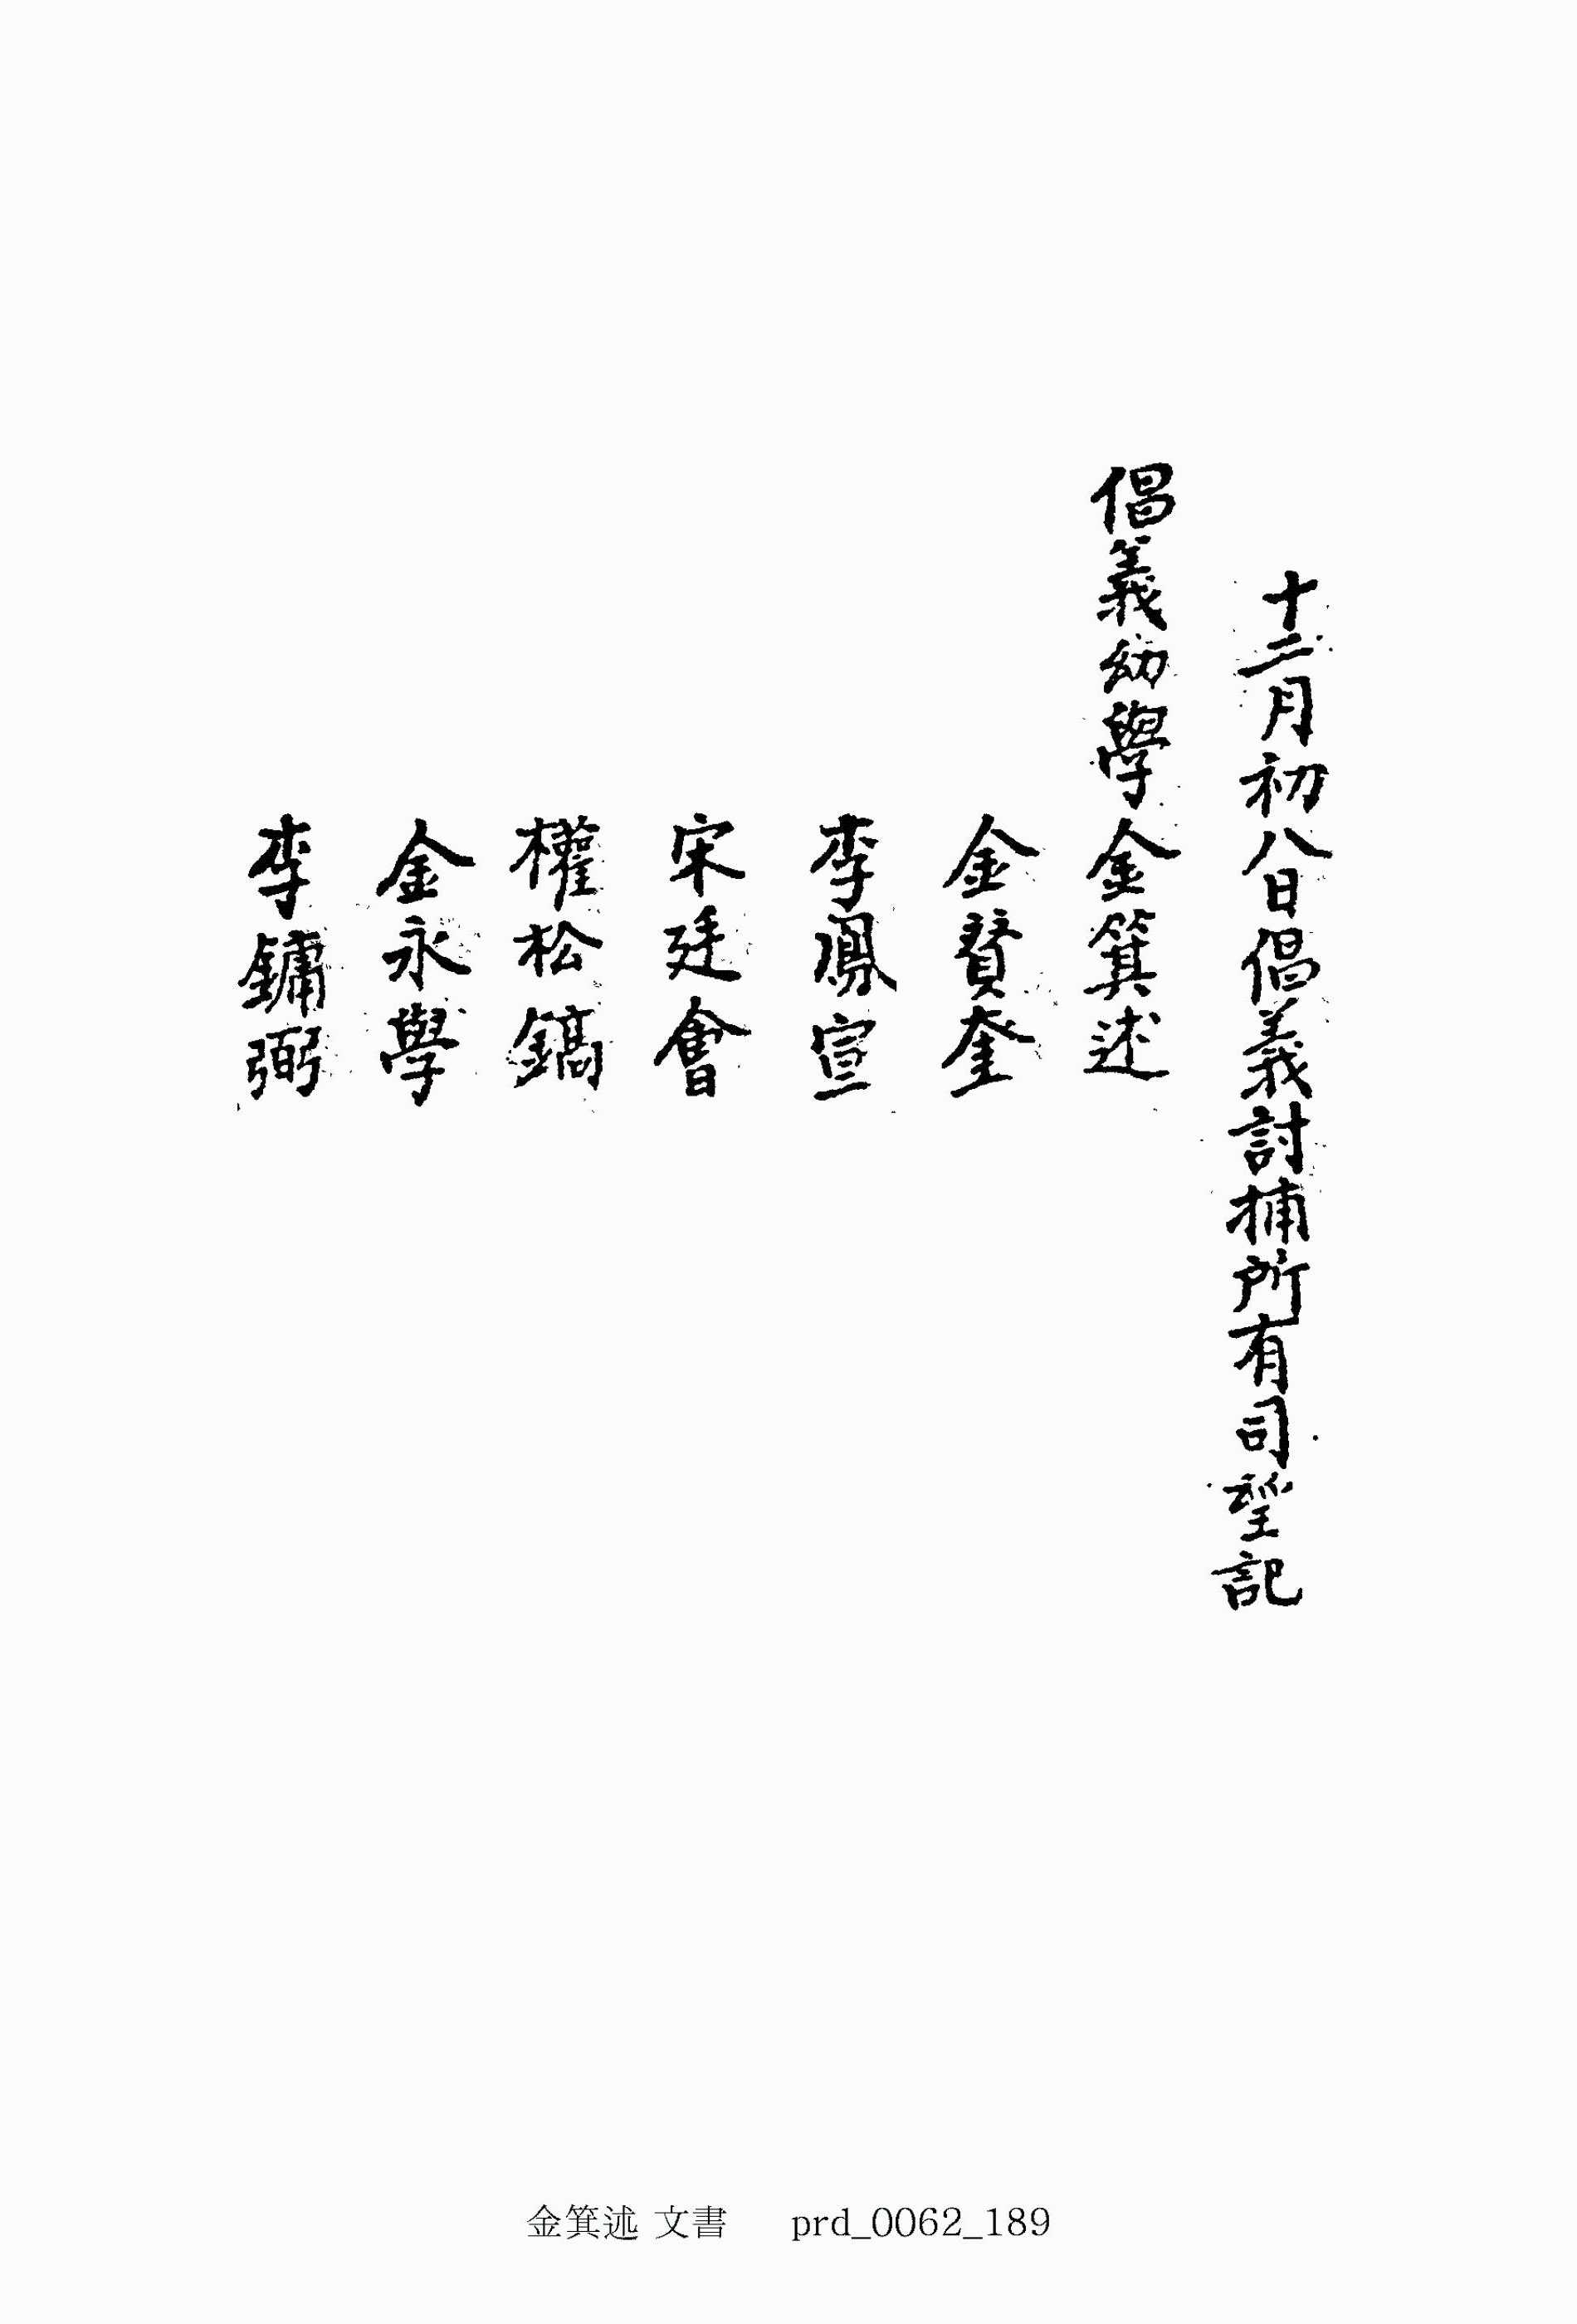 十二月初八日倡義討捕所有司望記
倡義幼學金箕述
金賛奎
李鳳宣
宋廷會
權松鎬
金永學
李鏞弼
金箕述 文書 prd_0062_189